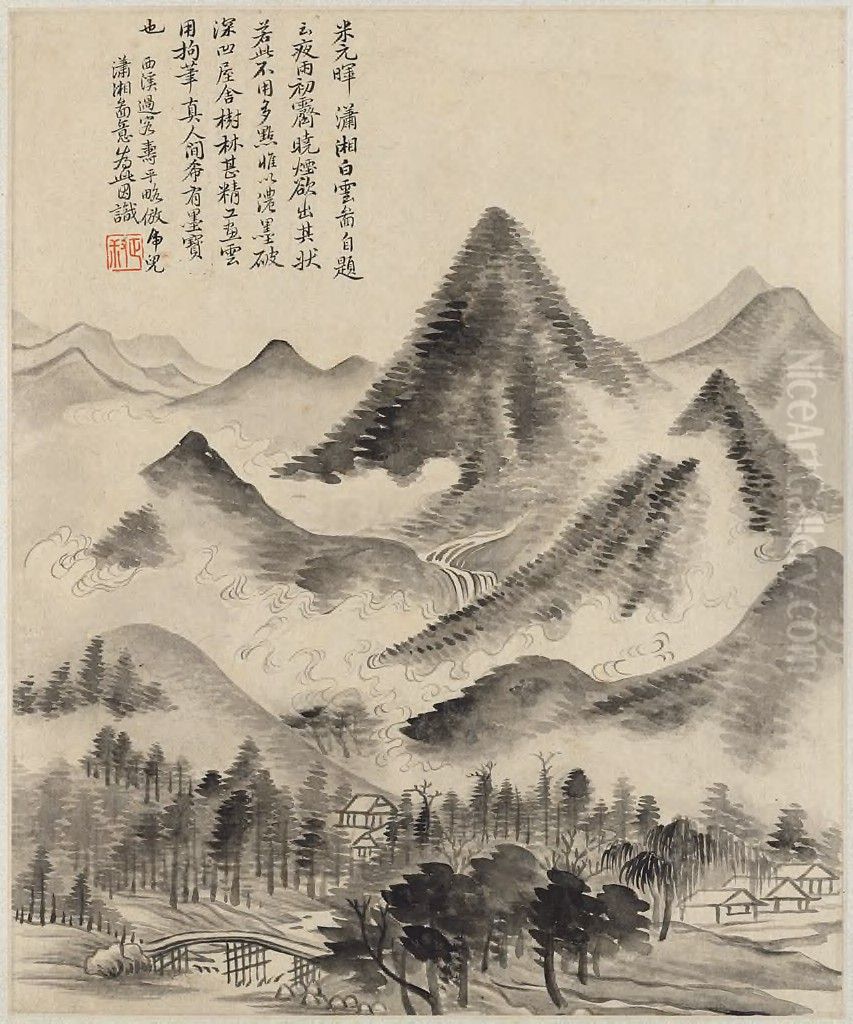 米元暉瀟湘白雲啚自題
云夜雨初霽曉煙欲出其狀
若此不用多點惟以濃墨破
深凹屋舍樹林甚精工畫雲
用拘筆真人間希有墨寶
也
西溪過客壽平略倣虎兒
瀟湘啚意為此因識
NiceArtGallery.com